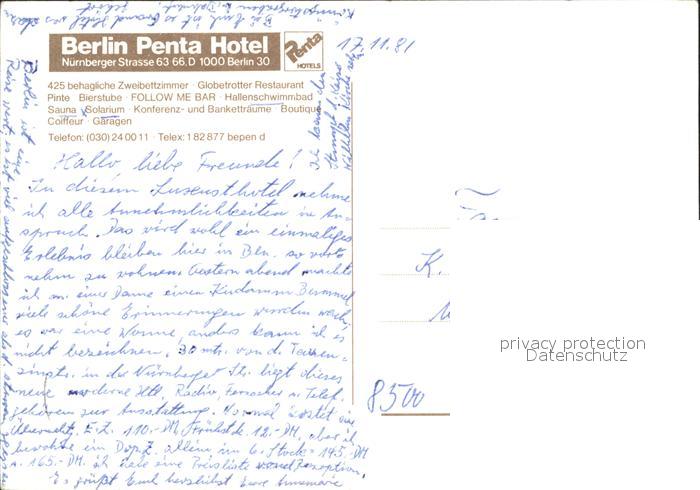 Berlin Penta Hotel
Nürnberger Strasse 63 66. D 1000 Berlin 30
Penta
HOTELS
425 behagliche Zweibettzimmer · Globetrotter Restaurant
Pinte · Bierstube · FOLLOW ME BAR · Hallenschwimmbad
Sauna · Solarium · Konferenz- und Banketträume · Boutique
Coiffeur · Garagen
Telefon: (030) 24 00 11 · Telex: 1 82 877 bepen d
17.11.81
Hallo liebe Freunde!
In diesem Luxusthotel nehme
ich alle Annehmlichkeiten in An-
spruch. Das wird wohl ein einmaliges
Erlebnis bleiben hier in Bln. so vor
nehm zu wohnen. Gestern abend machte
ich m. einer Dame einen Kudamm Bummel
viele schöne Erinnerungen wurden wach
es war eine Wonne, anders kann ich es
nicht bezeichnen. 30 mtr. von d. Tauen-
zinstr. in der Nürnberger Str. liegt dieses
neue moderne Htl. Radio, Fernseher u. Telef.
gehören zur Ausstattung. Normal kostet eine
Übernacht. E.Z. 110.-DM, Frühstck. 12.-DM, aber ich
bewohne ein Dop.Z. allein im 6. Stock = 145.-DM
u. 165.-DM. ich habe eine Preisliste
Es grüßt Euch herzlichst Eure Annemarie
Berlin ist eine
Reise wert, es hat viel
K.
8500
privacy protection
Datenschutz